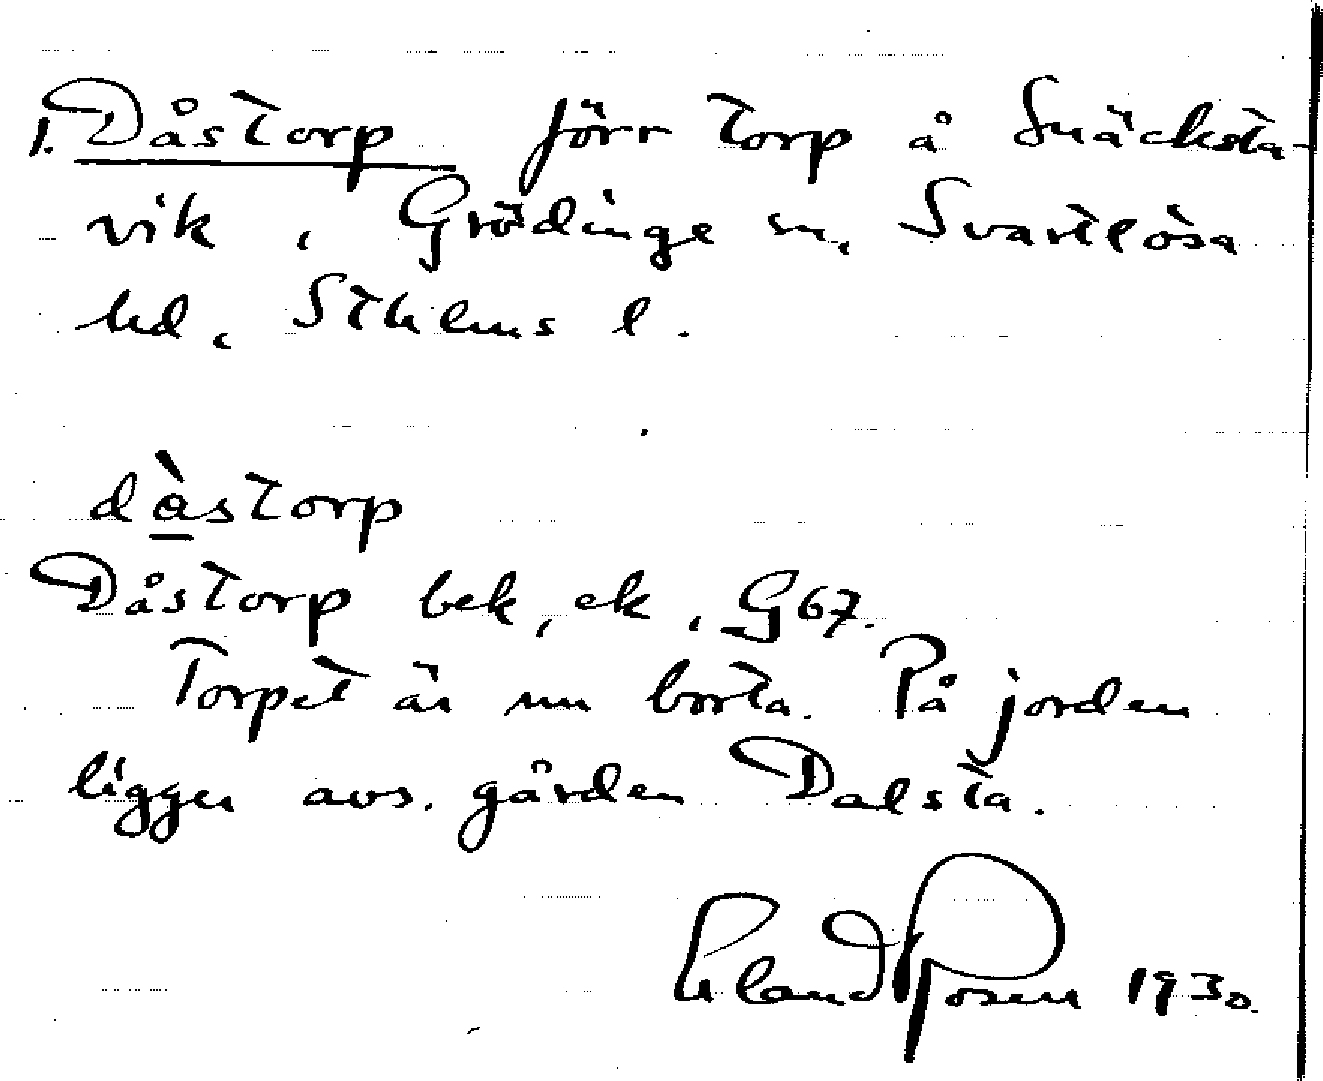 1. Dåstorp förr torp å Snäcksta-
vik, Grödinge sn, Svartlösa
hd, Sthlms l.
dåstorp
Dåstorp bek, ek, G 67.
Torpet är nu borta. På jorden
ligger avs. gården Dalsta.
Erland Rosen 1930.